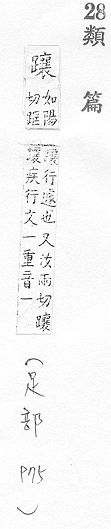 28 類篇
躟
如陽
切
躟行遽也又汝兩切躟
躟疾行文一重音一
(足部 P75)